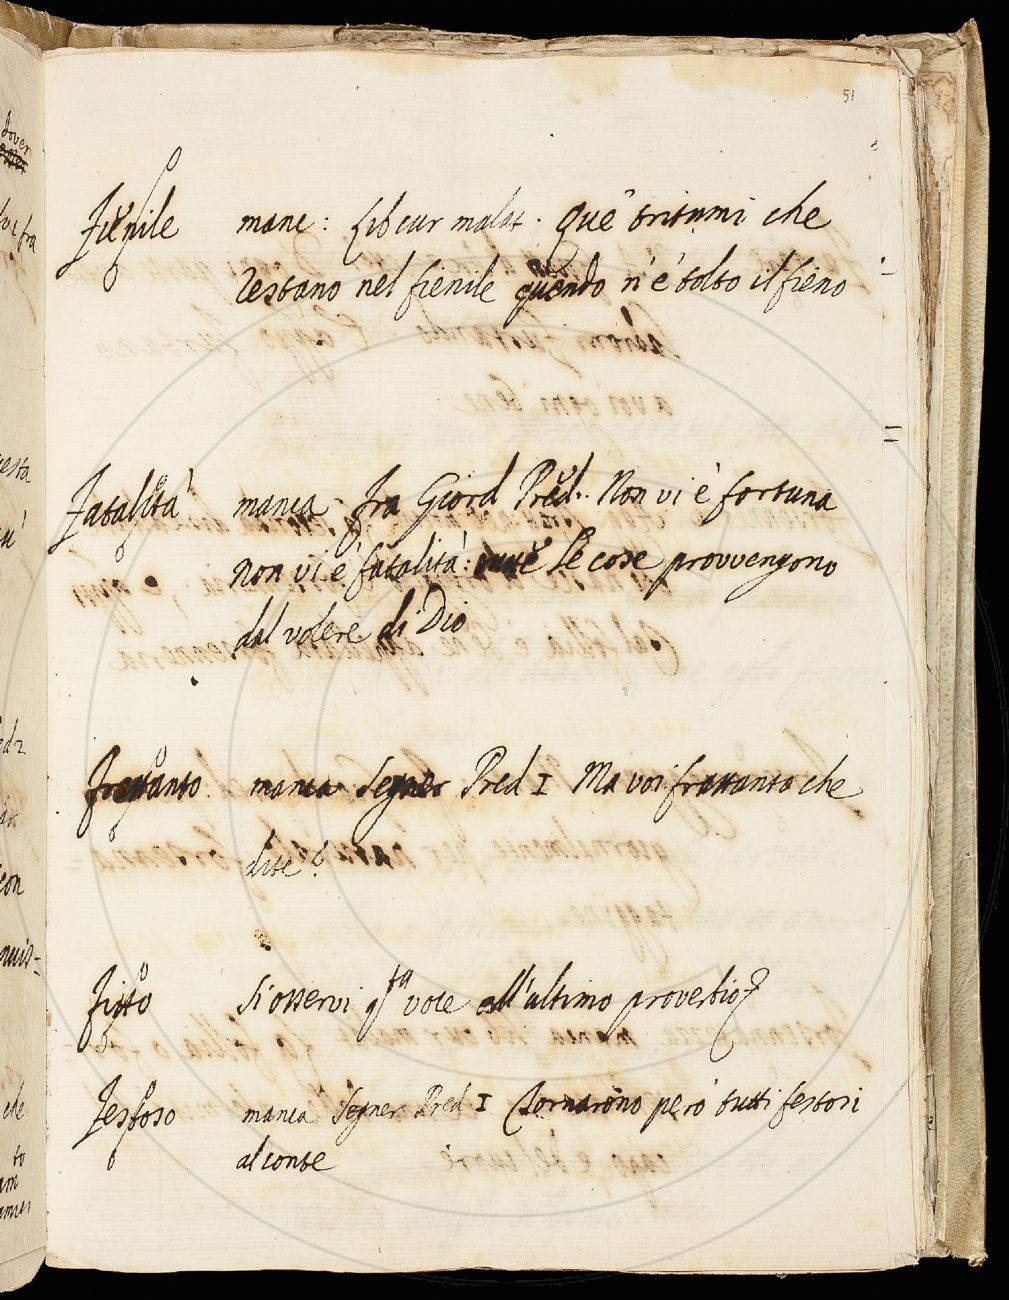 51
Fienile manc: Lib cur malat. Que tritumi che
restano nel fienile quando n'è tolto il fieno
Fatalità manca Fra Giord Pred. Non vi è fortuna
non vi è fatalità: tutte le cose provvengono
dal volere di Dio
Frattanto manca Segner Pred I Ma voi frattanto che
dite?
Fitto Si osservi qta voce all'ultimo proverbio
Festoso manca Segner Pred I Tornarono però tutti festosi
al conte